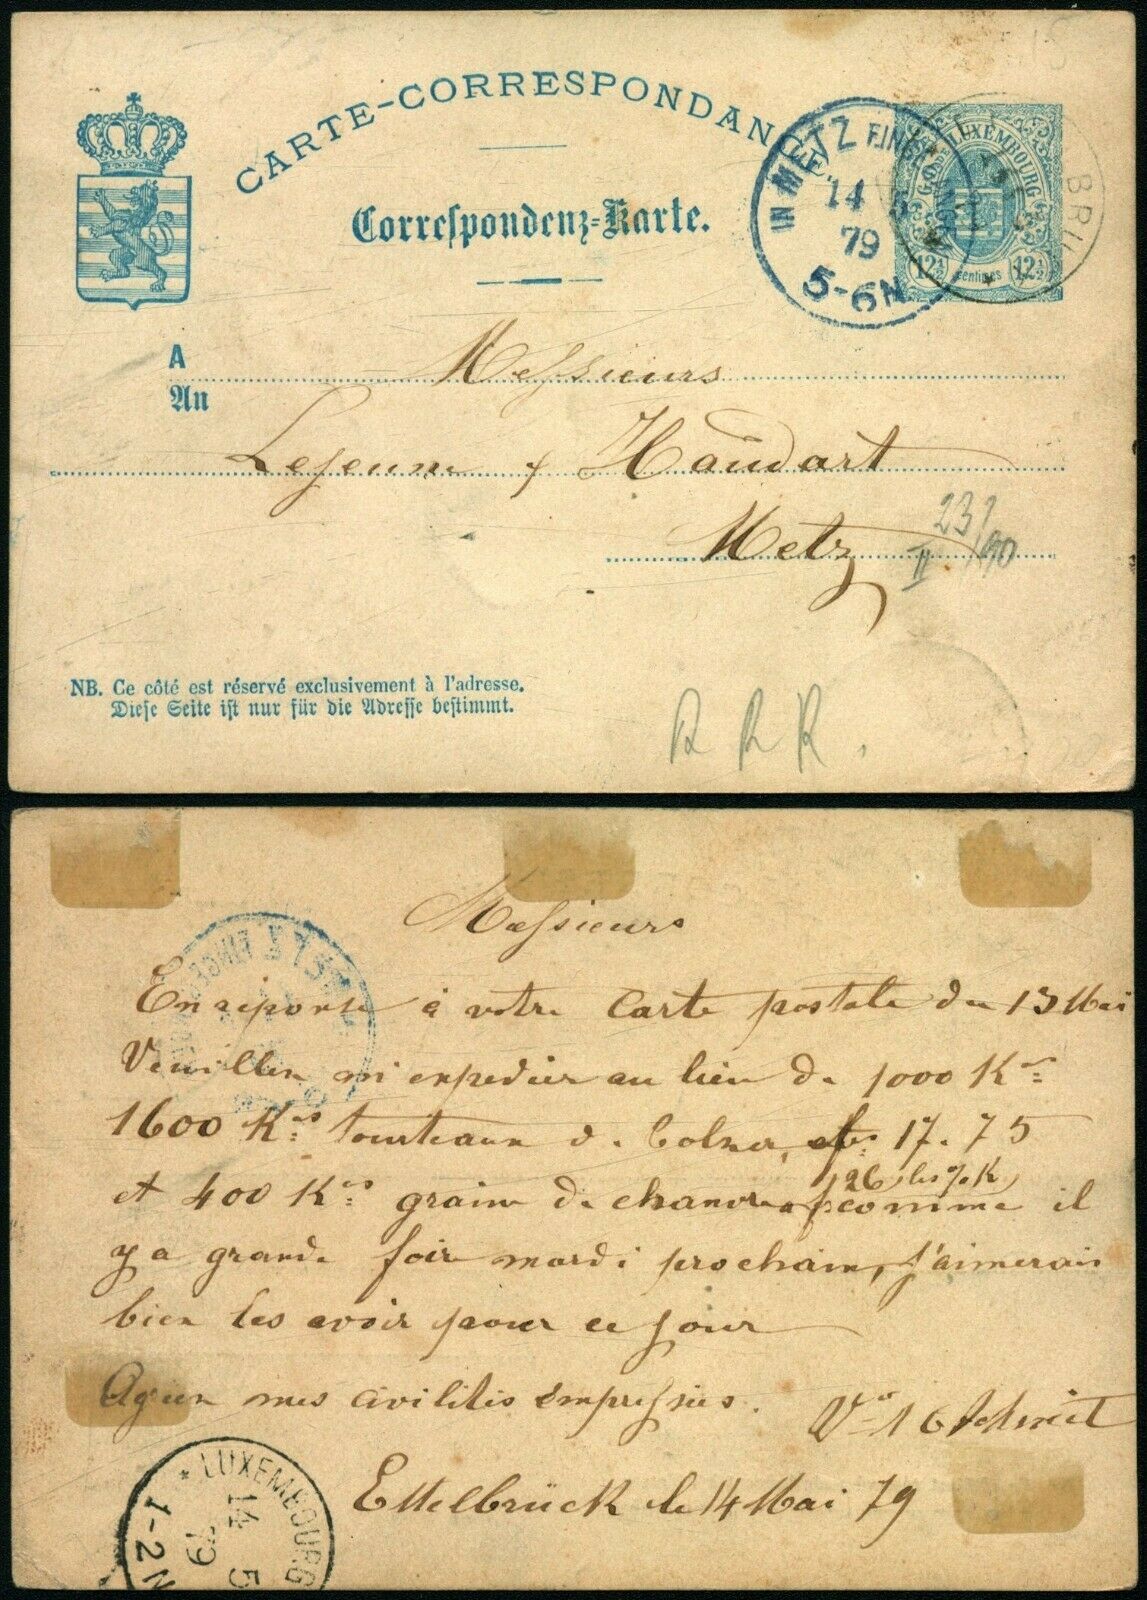 CARTE-CORRESPONDANCE.
Correspondenz-Karte.
IN METZ EINGEGANGEN
14 5
79
5-6N
G.D. DE LUXEMBOURG
12½ centimes 12½
BRÜ
A
An
Messieurs
Lejeune & Haudart
Metz
231
II /90
NB. Ce côté est réservé exclusivement à l'adresse.
Diese Seite ist nur für die Adresse bestimmt.
R R R.
Messieurs
En reponse à votre Carte postale du 13 Mai
Veuillez m'expedier au lieu de 1000 Kos
1600 Kos tourteaux de Colza, frs 17.75
et 400 Kos graine de chanvre
f 26 les % K
comme il
y a grande foire mardi prochain, j'aimerais
bien les avoir pour ce jour
Agréez mes civilités empressées.
Ve Schmit
Ettelbrück le 14 Mai 79
LUXEMBOURG
14 5
79
1-2N